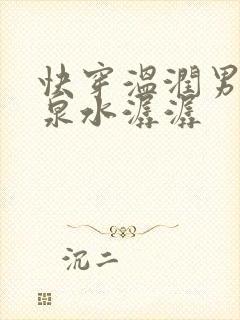 快穿温润男
泉水潺潺
沉二